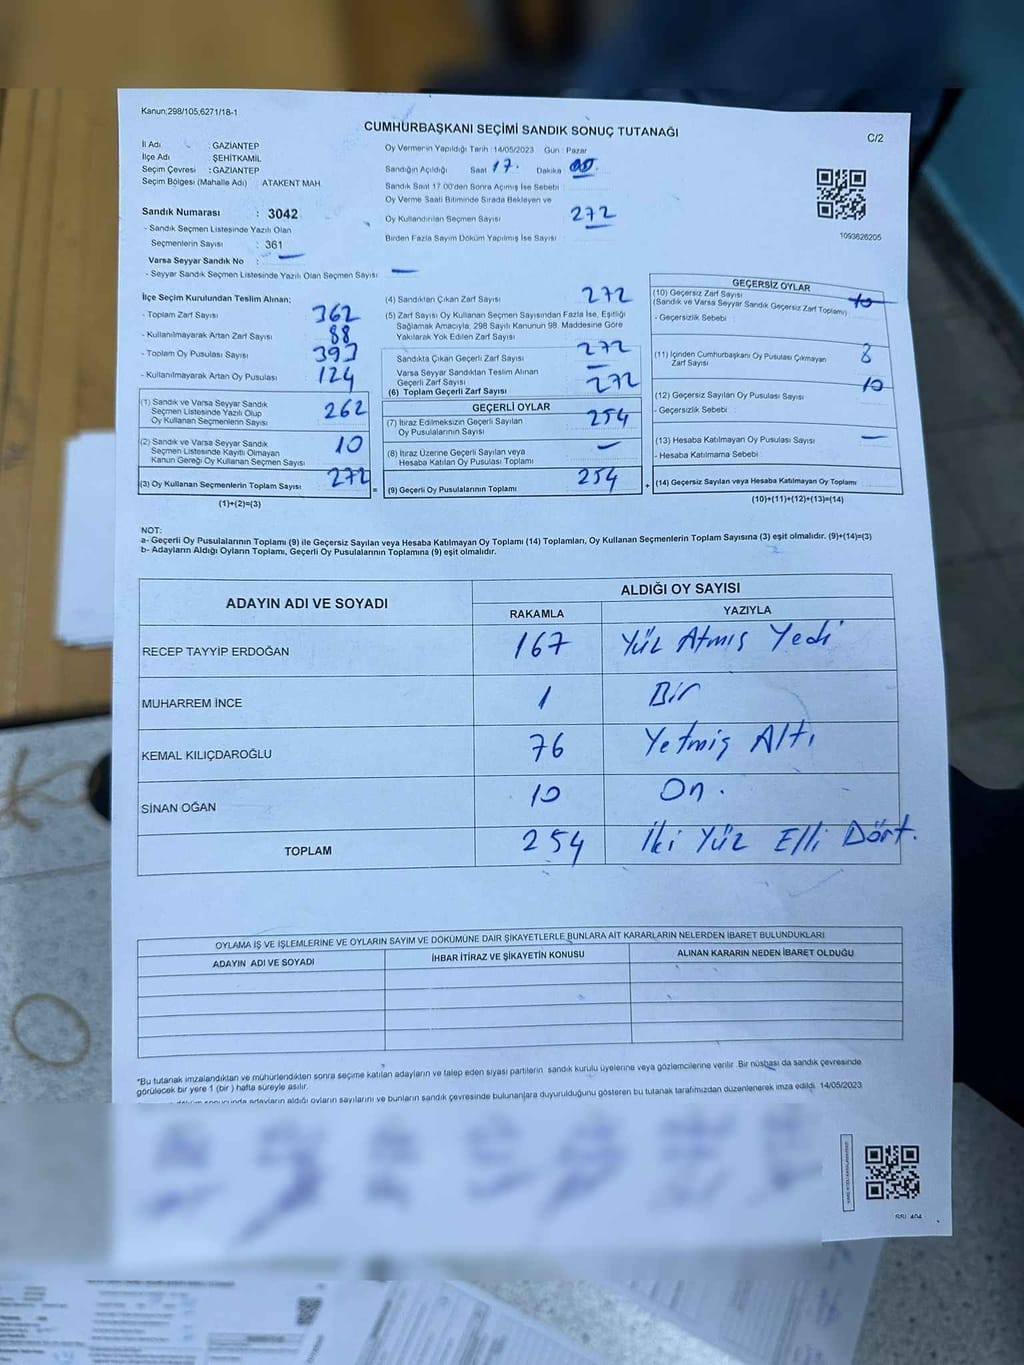 Kanun;298/105,6271/18-1
CUMHURBAŞKANI SEÇİMİ SANDIK SONUÇ TUTANAĞI
C/2
İl Adı : GAZİANTEP
İlçe Adı : ŞEHİTKAMİL
Seçim Çevresi : GAZİANTEP
Seçim Bölgesi (Mahalle Adı) ATAKENT MAH
Sandık Numarası : 3042
- Sandık Seçmen Listesinde Yazılı Olan
Seçmenlerin Sayısı : 361
Varsa Seyyar Sandık No : —
- Seyyar Sandık Seçmen Listesinde Yazılı Olan Seçmen Sayısı : —
Oy Vermenin Yapıldığı Tarih : 14/05/2023 Gün : Pazar
Sandığın Açıldığı Saat 17. Dakika 00.
Sandık Saat 17.00'den Sonra Açılmış İse Sebebi :
Oy Verme Saati Bitiminde Sırada Bekleyen ve
Oy Kullandırılan Seçmen Sayısı 272
Birden Fazla Sayım Döküm Yapılmış İse Sayısı :
1093626205
İlçe Seçim Kurulundan Teslim Alınan;
- Toplam Zarf Sayısı 362
- Kullanılmayarak Artan Zarf Sayısı 88
- Toplam Oy Pusulası Sayısı 393
- Kullanılmayarak Artan Oy Pusulası 124
(1) Sandık ve Varsa Seyyar Sandık
Seçmen Listesinde Yazılı Olup
Oy Kullanan Seçmenlerin Sayısı 262
(2) Sandık ve Varsa Seyyar Sandık
Seçmen Listesinde Kayıtlı Olmayan
Kanun Gereği Oy Kullanan Seçmen Sayısı 10
(3) Oy Kullanan Seçmenlerin Toplam Sayısı 272 =
(1)+(2)=(3)
(4) Sandıktan Çıkan Zarf Sayısı 272
(5) Zarf Sayısı Oy Kullanan Seçmen Sayısından Fazla İse, Eşitliği
Sağlamak Amacıyla, 298 Sayılı Kanunun 98. Maddesine Göre
Yakılarak Yok Edilen Zarf Sayısı
Sandıkta Çıkan Geçerli Zarf Sayısı 272
Varsa Seyyar Sandıktan Teslim Alınan
Geçerli Zarf Sayısı —
(6) Toplam Geçerli Zarf Sayısı 272
GEÇERLİ OYLAR
(7) İtiraz Edilmeksizin Geçerli Sayılan
Oy Pusulalarının Sayısı 254
(8) İtiraz Üzerine Geçerli Sayılan veya
Hesaba Katılan Oy Pusulası Toplamı —
(9) Geçerli Oy Pusulalarının Toplamı 254 +
GEÇERSİZ OYLAR
(10) Geçersiz Zarf Sayısı
(Sandık ve Varsa Seyyar Sandık Geçersiz Zarf Toplamı)
- Geçersizlik Sebebi :
(11) İçinden Cumhurbaşkanı Oy Pusulası Çıkmayan
Zarf Sayısı 8
(12) Geçersiz Sayılan Oy Pusulası Sayısı 10
- Geçersizlik Sebebi :
(13) Hesaba Katılmayan Oy Pusulası Sayısı —
- Hesaba Katılmama Sebebi :
(14) Geçersiz Sayılan veya Hesaba Katılmayan Oy Toplamı
(10)+(11)+(12)+(13)=(14)
NOT:
a- Geçerli Oy Pusulalarının Toplamı (9) ile Geçersiz Sayılan veya Hesaba Katılmayan Oy Toplamı (14) Toplamları, Oy Kullanan Seçmenlerin Toplam Sayısına (3) eşit olmalıdır. (9)+(14)=(3)
b- Adayların Aldığı Oyların Toplamı, Geçerli Oy Pusulalarının Toplamına (9) eşit olmalıdır.
ADAYIN ADI VE SOYADI
ALDIĞI OY SAYISI
RAKAMLA YAZIYLA
RECEP TAYYİP ERDOĞAN 167 Yüz Atmış Yedi
MUHARREM İNCE 1 Bir
KEMAL KILIÇDAROĞLU 76 Yetmiş Altı
SİNAN OĞAN 10 On.
TOPLAM 254 İki Yüz Elli Dört.
OYLAMA İŞ VE İŞLEMLERİNE VE OYLARIN SAYIM VE DÖKÜMÜNE DAİR ŞİKAYETLERLE BUNLARA AİT KARARLARIN NELERDEN İBARET BULUNDUKLARI
ADAYIN ADI VE SOYADI İHBAR İTİRAZ VE ŞİKAYETİN KONUSU ALINAN KARARIN NEDEN İBARET OLDUĞU
*Bu tutanak imzalandıktan ve mühürlendikten sonra seçime katılan adayların ve talep eden siyasi partilerin sandık kurulu üyelerine veya gözlemcilerine verilir. Bir nüshası da sandık çevresinde
görülecek bir yere 1 (bir) hafta süreyle asılır.
adayların aldığı oyların sayılarını ve bunların sandık çevresinde bulunanlara duyurulduğunu gösteren bu tutanak tarafımızdan düzenlenerek imza edildi. 14/05/2023